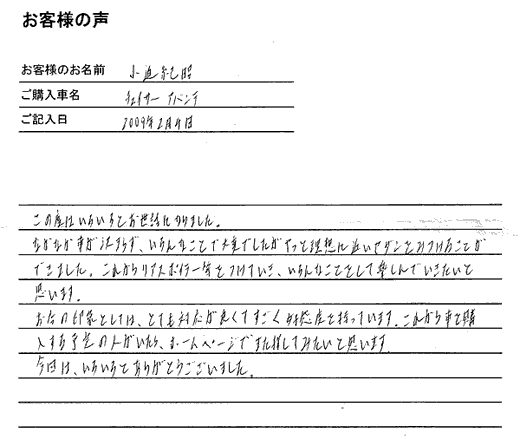 お客様の声
お客様のお名前
ご購入車名 チェイサー アバンテ
ご記入日 2009年2月4日
この度はいろいろとお世話になりました。
なかなか車が決まらず、いろんなことで大変でしたがやっと理想に近いセダンをみつけることが
できました。これからリアスポイラー等をつけていき、いろんなことをして楽しんでいきたいと
思います。
お店の印象としては、とても対応が良くてすごく好感度を持っています。これから車を購
入する予定の人がいたら、ホームページでまた探してみたいと思います。
今回は、いろいろとありがとうございました。